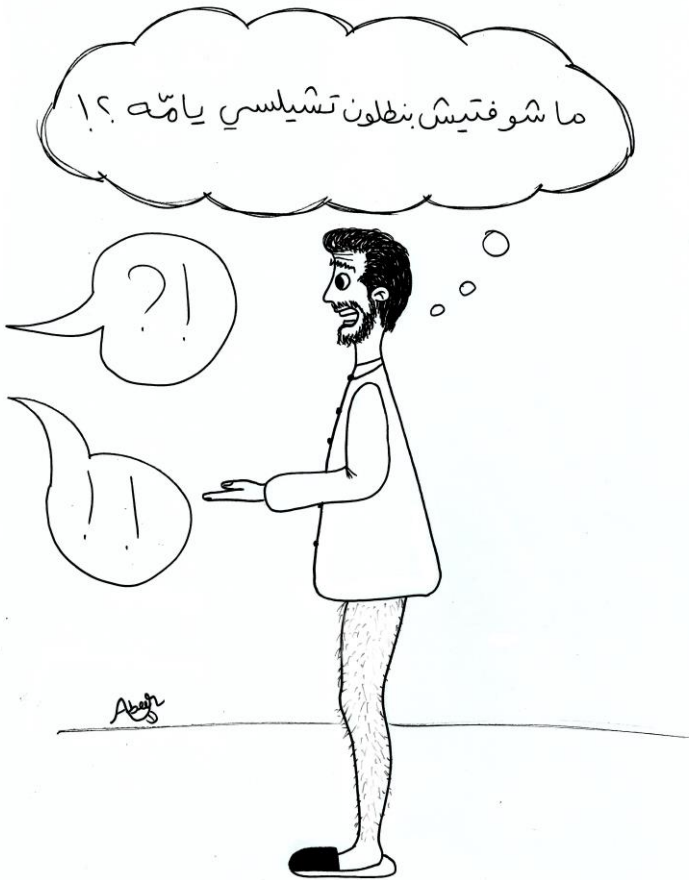 ما شوفتيش بنطلون تشيلسي يامّه ؟!
?!
!!
Abeer